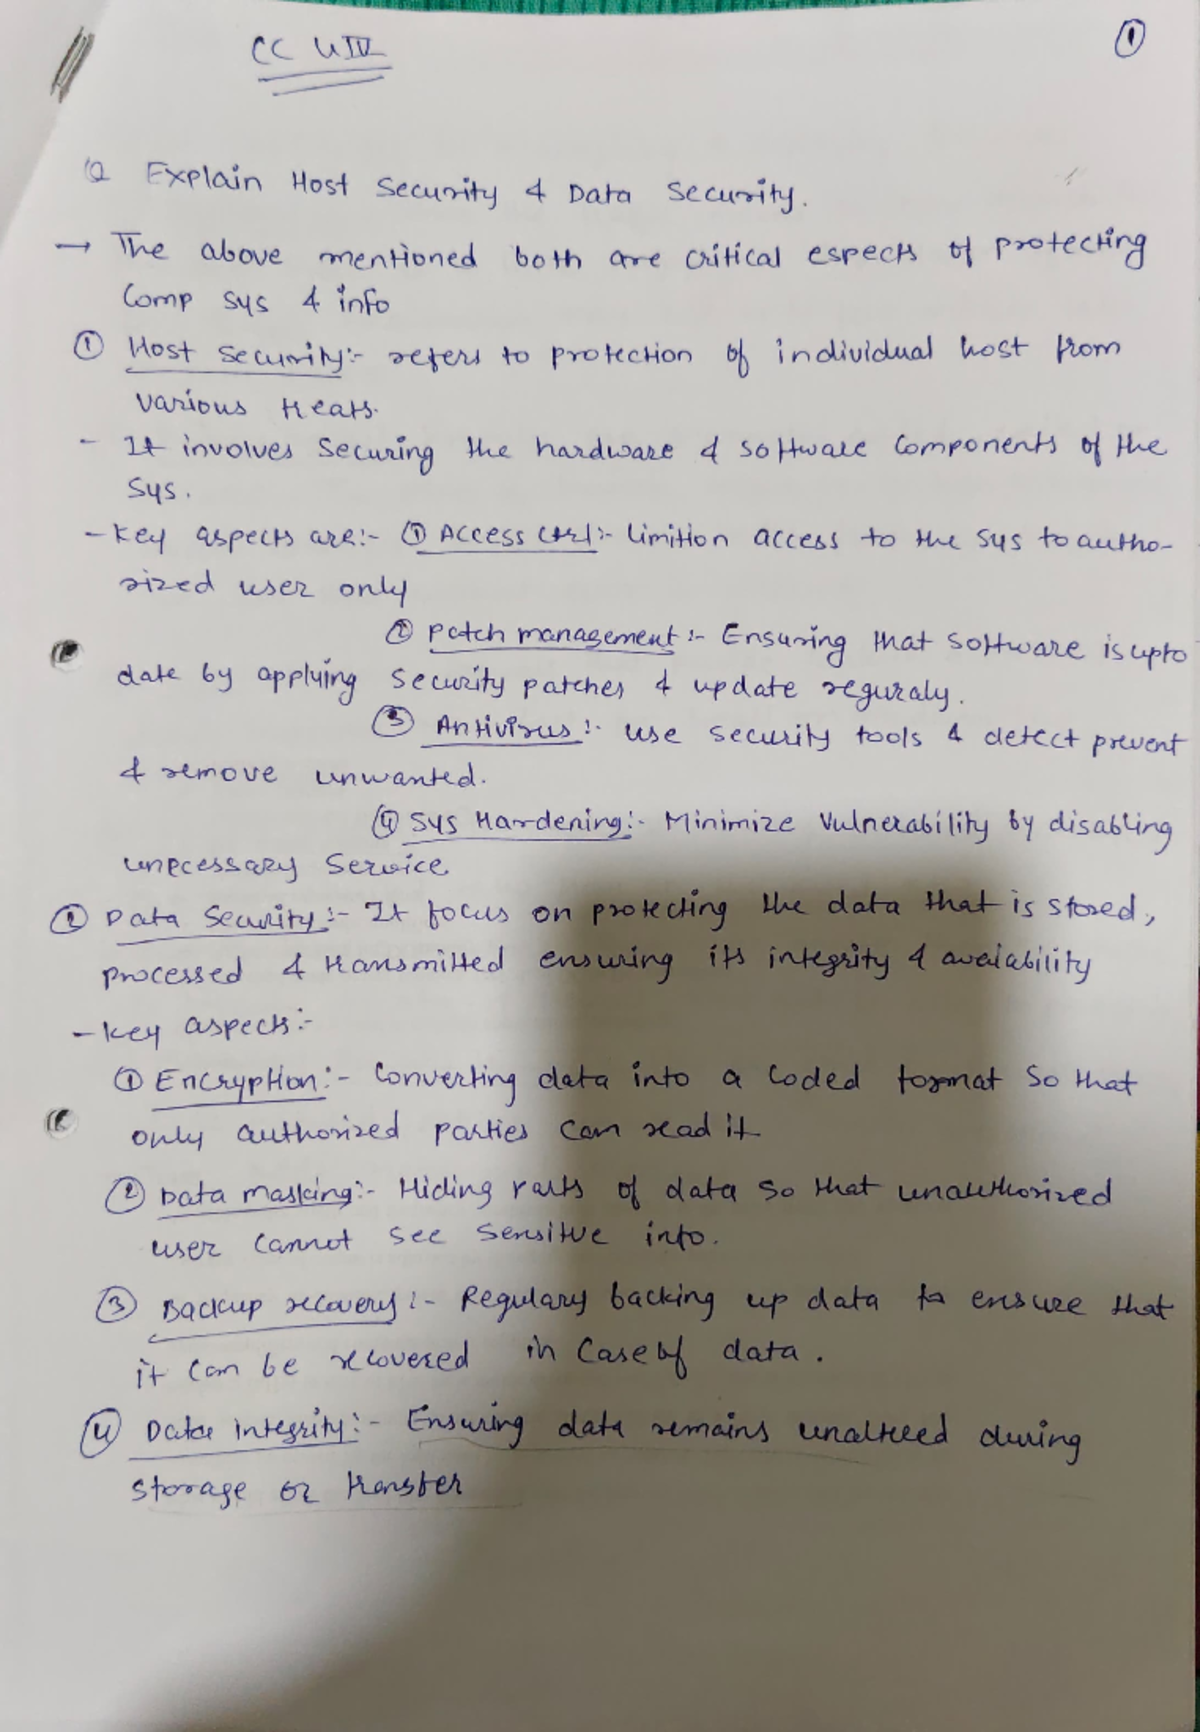 CC U IV
1
Q Explain Host Security & Data Security.
→ The above mentioned both are critical espects of protecting
Comp sys & info
① Host Security:- refers to protection of individual host from
various treats.
- It involves Securing the hardware & software Components of the
Sys.
- Key aspects are:- ① Access Ctrl:- limition access to the sys to autho-
rized user only
② Patch management:- Ensuring that Software is upto
date by applying Security patches & update reguraly.
③ Antivirus:- use security tools & detect prevent
& remove unwanted.
④ Sys Hardening:- Minimize Vulnerability by disabling
unecessary Service
② Data Security:- It focus on protecting the data that is stored,
processed & transmitted ensuring its integrity & avaiability
- Key aspects:-
① Encryption:- Converting data into a Coded format So that
only authorized parties can read it
② Data masking:- Hiding parts of data so that unauthorized
user Cannot see Sensitve info.
③ Backup recovery:- Regulary backing up data to ensure that
it can be recovered in Case of data.
④ Data integrity:- Ensuring data remains unaltreed during
Storage or transfer